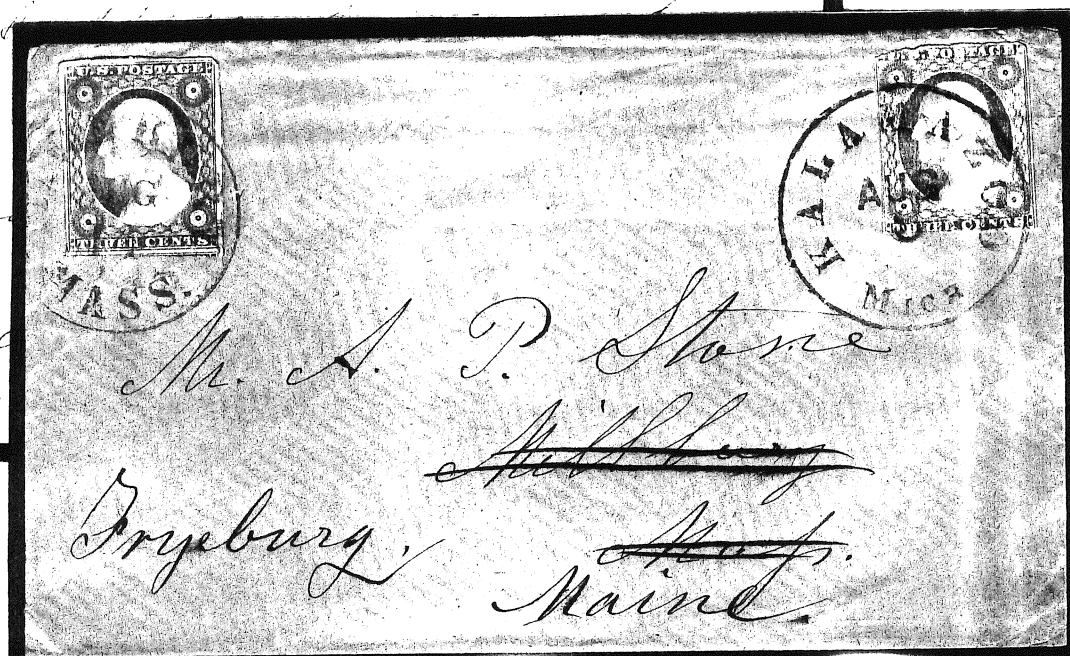 U.S. POSTAGE
THREE CENTS
MASS.
U.S. POSTAGE
THREE CENTS
KALA
AUG
Mich
Mr. A. P. Stone
Millbury
Mass.
Fryeburg,
Maine.